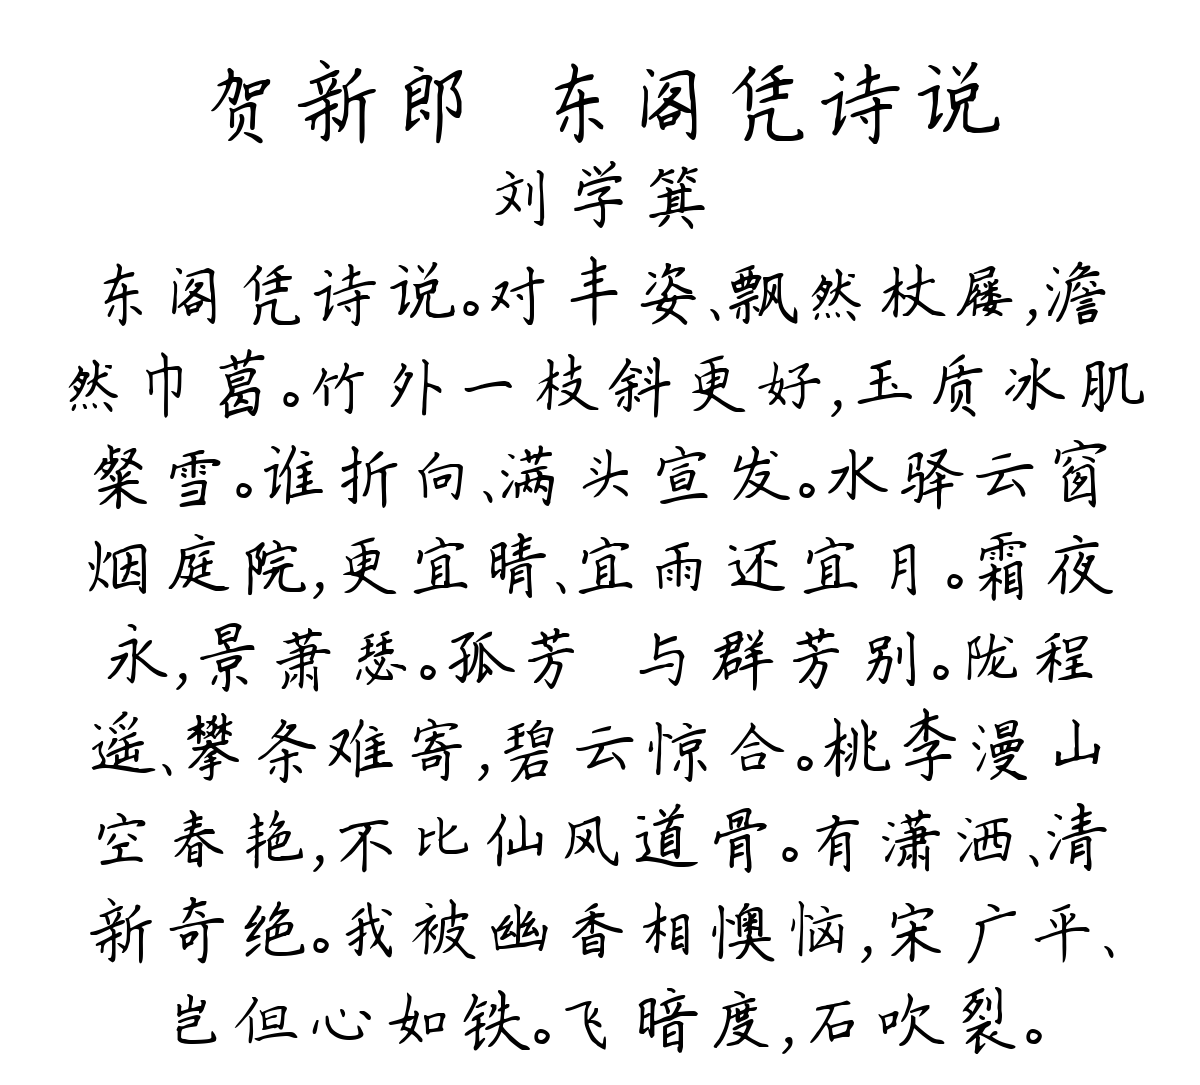 贺新郎 东阁凭诗说
刘学箕
东阁凭诗说。对丰姿、飘然杖屦,澹
然巾葛。竹外一枝斜更好,玉质冰肌
粲雪。谁折向、满头宣发。水驿云窗
烟庭院,更宜晴、宜雨还宜月。霜夜
永,景萧瑟。孤芳 与群芳别。陇程
遥、攀条难寄,碧云惊合。桃李漫山
空春艳,不比仙风道骨。有潇洒、清
新奇绝。我被幽香相懊恼,宋广平、
岂但心如铁。飞暗度,石吹裂。